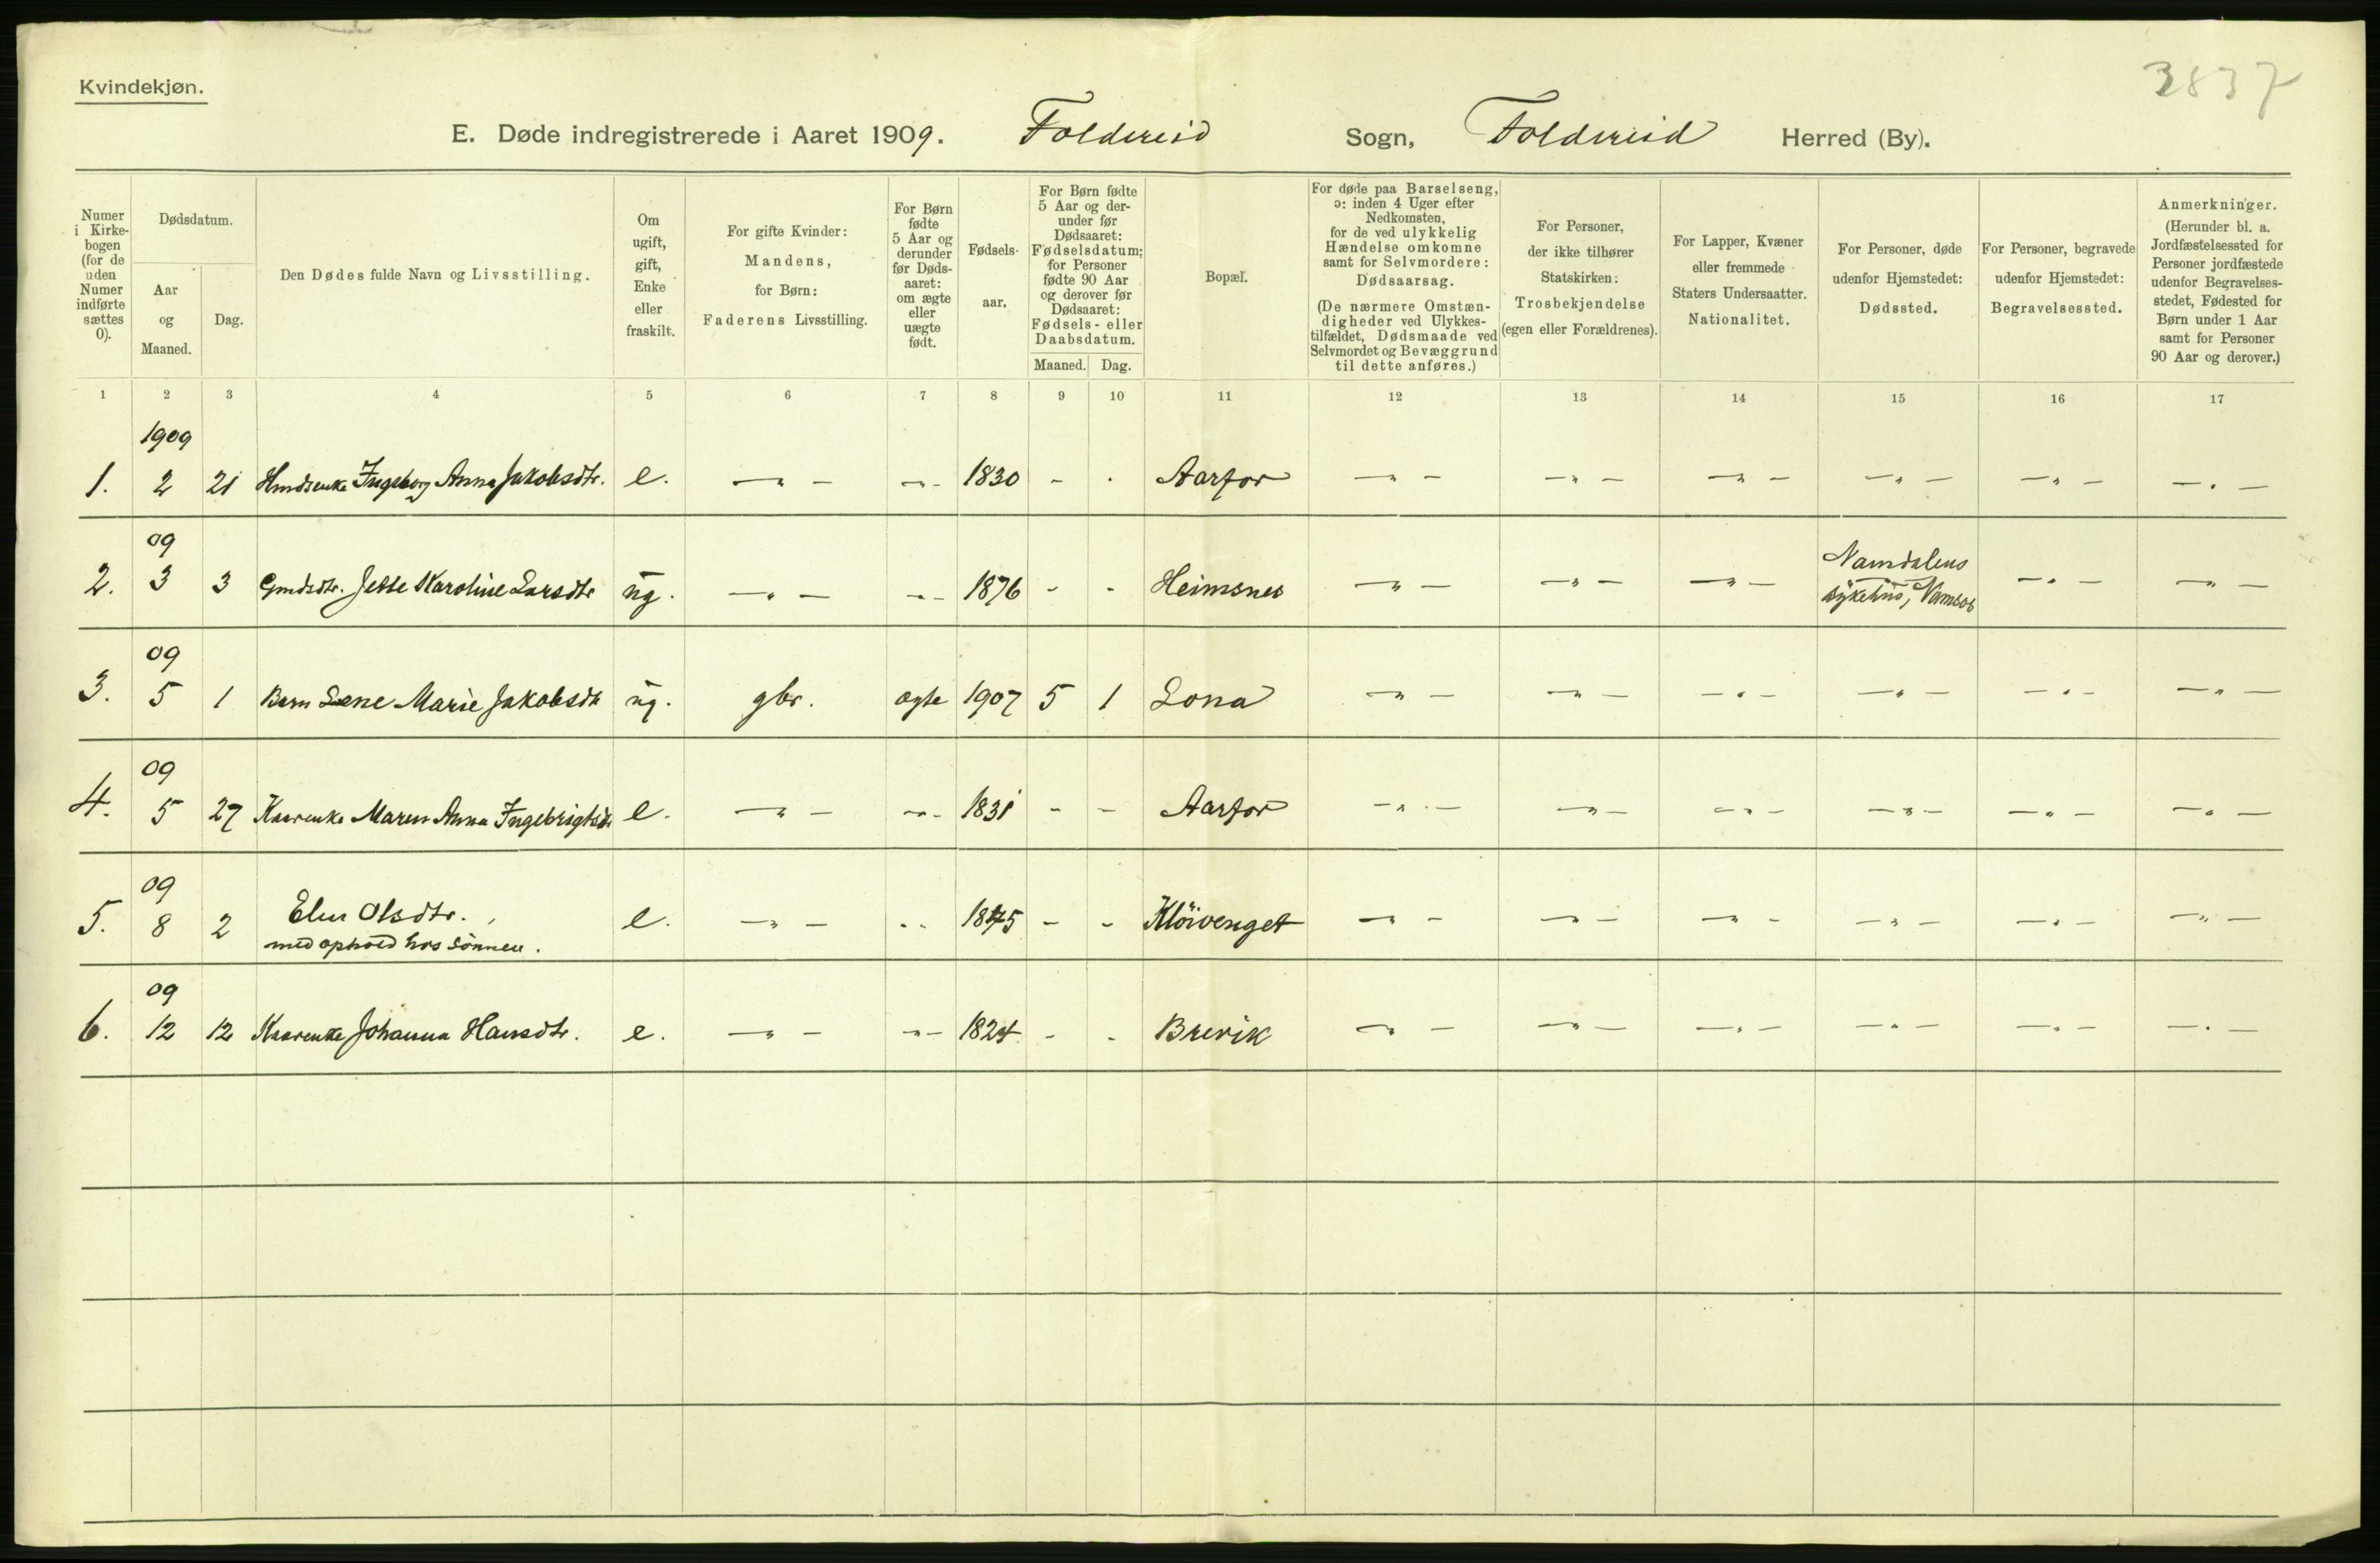 Kvindekjøn.
3837
E. Døde indregistrerede i Aaret 1909. Foldereid Sogn, Foldereid Herred (By).
Numer i Kirkebogen (for de uden Numer indførte sættes 0).
Dødsdatum.
Aar og Maaned.
Dag.
Den Dødes fulde Navn og Livsstilling.
Om ugift, gift, Enke eller fraskilt.
For gifte Kvinder: Mandens, for Børn: Faderens Livsstilling.
For Børn fødte 5 Aar og derunder før Dødsaaret: om ægte eller uægte født.
Fødselsaar.
For Børn fødte 5 Aar og derunder før Dødsaaret: Fødselsdatum; for Personer fødte 90 Aar og derover før Dødsaaret: Fødsels- eller Daabsdatum.
Maaned. Dag.
Bopæl.
For døde paa Barselseng, ɔ: inden 4 Uger efter Nedkomsten, for de ved ulykkelig Hændelse omkomne samt for Selvmordere: Dødsaarsag.
(De nærmere Omstændigheder ved Ulykkestilfældet, Dødsmaade ved Selvmordet og Bevæggrund til dette anføres.)
For Personer, der ikke tilhører Statskirken: Trosbekjendelse (egen eller Forældrenes).
For Lapper, Kvæner eller fremmede Staters Undersaatter. Nationalitet.
For Personer, døde udenfor Hjemstedet: Dødssted.
For Personer, begravede udenfor Hjemstedet: Begravelsessted.
Anmerkninger. (Herunder bl. a. Jordfæstelsessted for Personer jordfæstede udenfor Begravelsesstedet, Fødested for Børn under 1 Aar samt for Personer 90 Aar og derover.)
1 2 3 4 5 6 7 8 9 10 11 12 13 14 15 16 17
1909
1. 2 21 Hmdsenke Ingeborg Anna Jakobsdtr. e. —„— —„— 1830 - - Aarfor —„— —„— —„— —„— —„— —„—
09
2. 3 3 Gmdsdtr. Jette Karoline Larsdtr ug. —„— —„— 1876 - - Heimsnes —„— —„— —„— Namdalens sykehus, Namsos —„— —„—
09
3. 5 1 Barn Lene Marie Jakobsdtr ug. gbr. ægte 1907 5 1 Lona —„— —„— —„— —„— —„— —„—
09
4. 5 27 Kaarenke Maren Anna Ingebrigtsdtr e. —„— —„— 1831 - - Aarfor —„— —„— —„— —„— —„— —„—
09
5. 8 2 Elen Olsdtr. e. —„— - - 1845 - - Klöivenget —„— —„— —„— —„— —„— —„—
med ophold hos sönnen.
09
6. 12 12 Kaarenke Johanna Hansdtr. e. —„— —„— 1824 - - Brevik —„— —„— —„— —„— —„— —„—